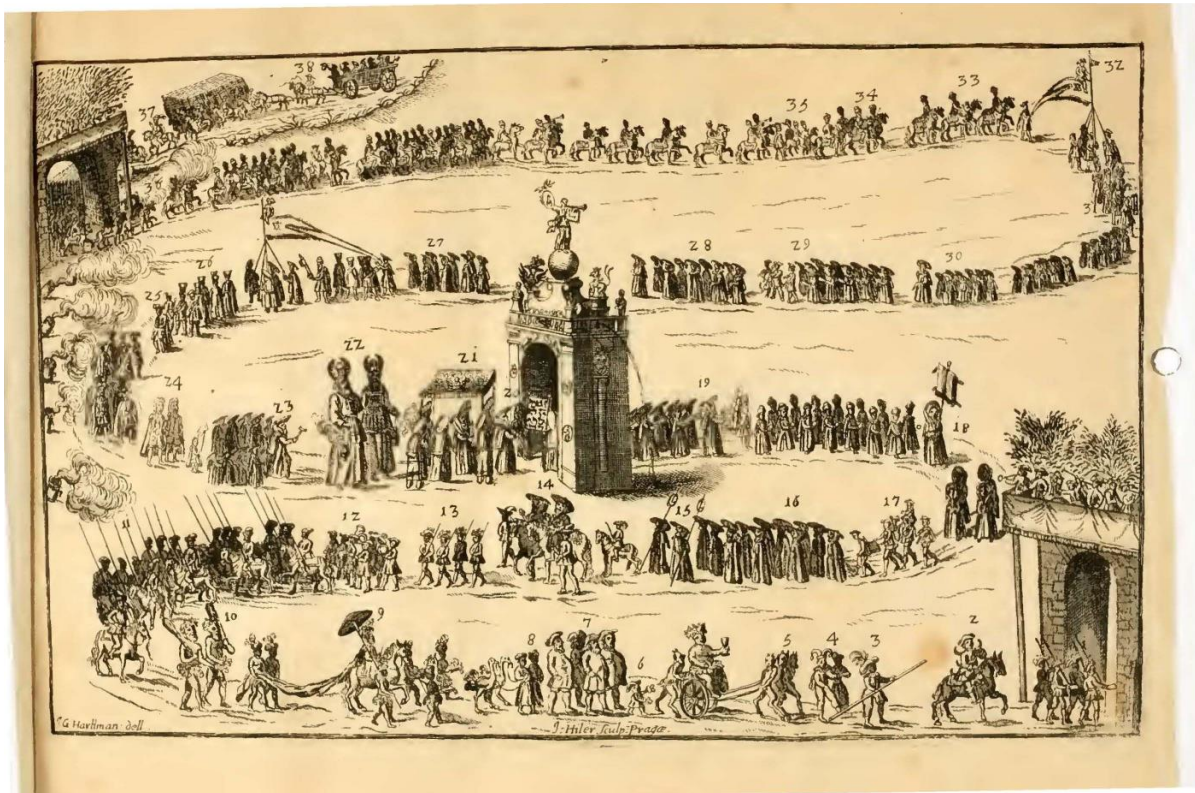 38
37
36
35
34
33
32
31
27
28
29
30
26
25
22
21
19
24
23
18
14
11
12
13
15
16
17
10
9
8
7
6
5
4
3
2
G Hartman dell
J: Hiler, sculp: Pragæ.